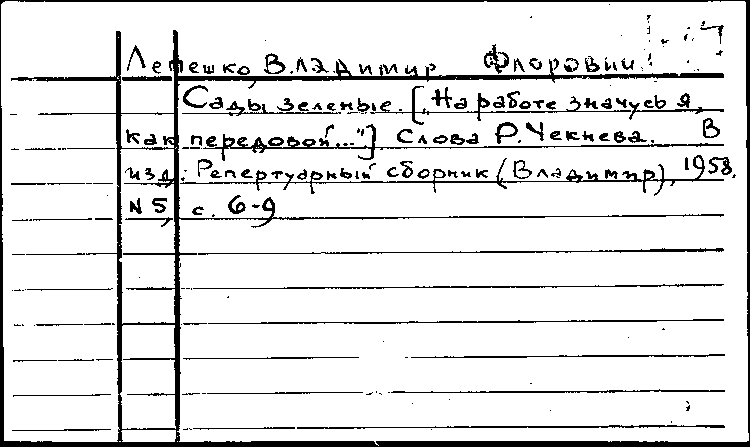 Лепешко, Владимир Флорович
Сады зеленые. [„На работе значусь я,
как передовой..."] Слова Р. Чекнева. В
изд.: Репертуарный сборник (Владимир), 1958,
N 5, с. 6-9